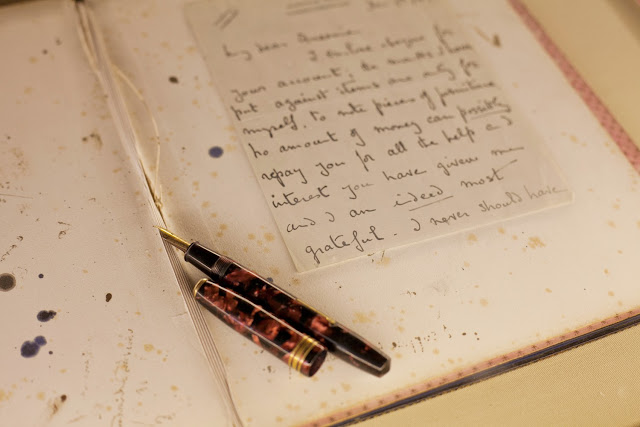 My dear Queenie
I enclose cheque for
your account; the marks I have
put against items are only for
myself, to note pieces of furniture
No amount of money can possibly
repay you for all the help and
interest you have given me
and I am indeed most
grateful. I never should have